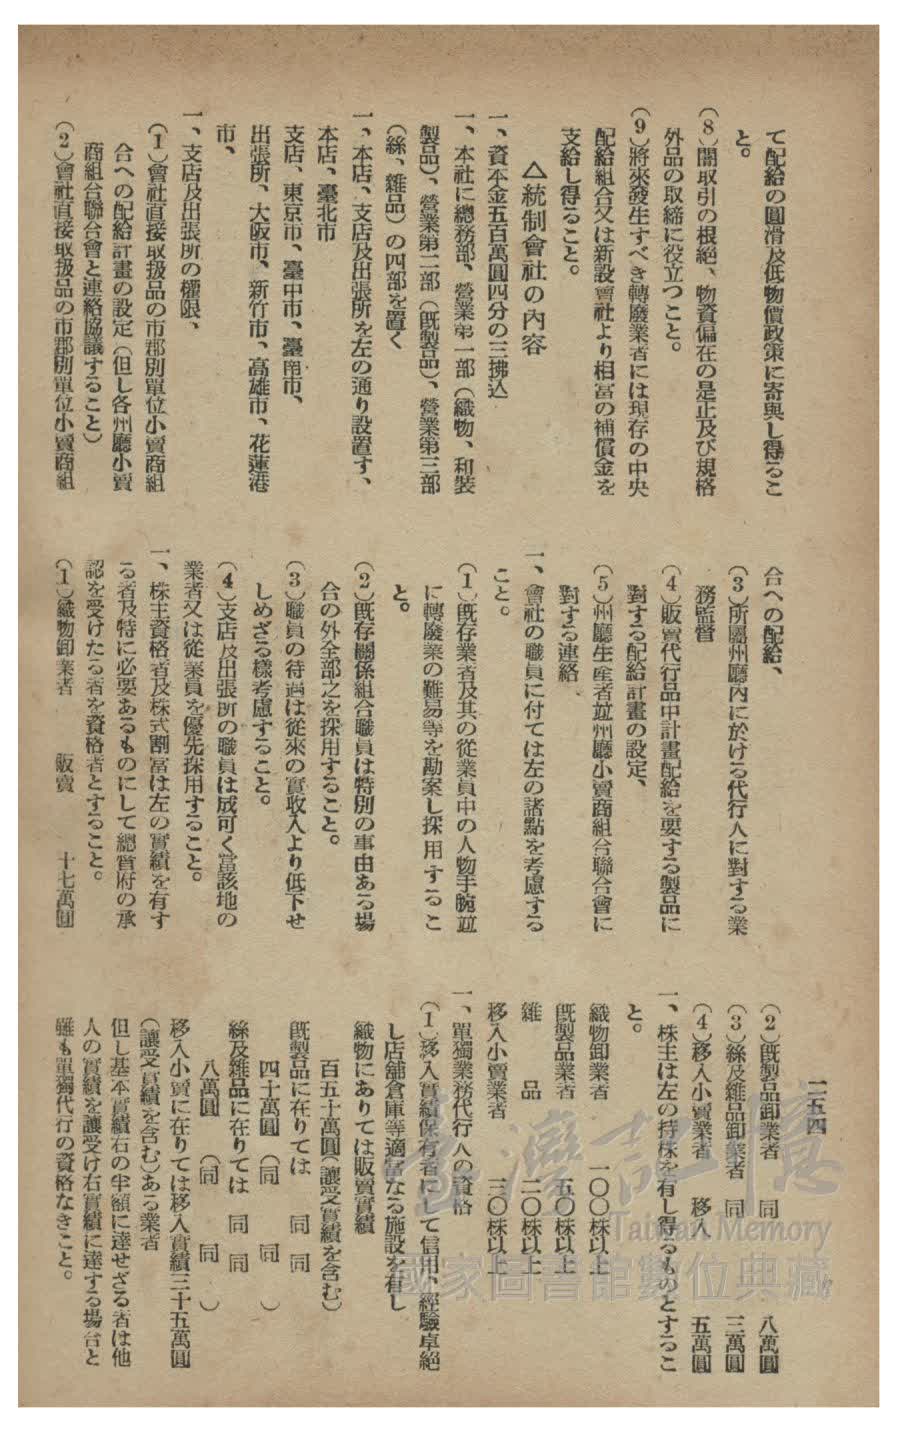 て配給の圓滑及低物價政策に寄與し得るこ
と。
(8)闇取引の根絶、物資偏在の是正及び規格
外品の取締に役立つこと。
(9)將來發生すべき轉廢業者には現存の中央
配給組合又は新設會社より相當の補償金を
支給し得ること。
△統制會社の内容
一、資本金五百萬圓四分の三拂込
一、本社に總務部、營業第一部(織物、和裝
製品)、營業第二部(既製品)、營業第三部
(絲、雜品)の四部を置く
一、本店、支店及出張所を左の通り設置す、
本店、臺北市
支店、東京市、臺中市、臺南市、
出張所、大阪市、新竹市、高雄市、花蓮港
市、
一、支店及出張所の權限、
(1)會社直接取扱品の市郡別單位小賣商組
合への配給計畫の設定(但し各州廳小賣
商組合聯合會と連絡協議すること)
(2)會社直接取扱品の市郡別單位小賣商組
合への配給、
(3)所屬州廳内に於ける代行人に對する業
務監督
(4)販賣代行品中計畫配給を要する製品に
對する配給計畫の設定、
(5)州廳生産者竝州廳小賣商組合聯合會に
對する連絡、
一、會社の職員に付ては左の諸點を考慮する
こと。
(1)既存業者及其の從業員中の人物手腕竝
に轉廢業の難易等を勘案し採用するこ
と。
(2)既存關係組合職員は特別の事由ある場
合の外全部之を採用すること。
(3)職員の待遇は從來の實收入より低下せ
しめざる樣考慮すること。
(4)支店及出張所の職員は成可く當該地の
業者又は從業員を優先採用すること。
一、株主資格者及株式割當は左の實績を有す
る者及特に必要あるものにして總督府の承
認を受けたる者を資格者とすること。
(1)織物卸業者 販賣 十七萬圓
二五四
(2)既製品卸業者 同 八萬圓
(3)絲及雜品卸業者 同 三萬圓
(4)移入小賣業者 移入 五萬圓
一、株主は左の持株を有し得るものとするこ
と。
織物卸業者 一〇〇株以上
既製品業者 五〇株以上
雜品 二〇株以上
移入小賣業者 三〇株以上
一、單獨業務代行人の資格
(1)移入實績保有者にして信用、經驗卓絶
し店舖倉庫等適當なる施設を有し
織物にありては販賣實績
百五十萬圓(讓受實績を含む)
既製品に在りては 同 同
四十萬圓(同 同)
絲及雜品に在りては 同 同
八萬圓(同 同)
移入小賣に在りては移入實績三十五萬圓
(讓受實績を含む)ある業者
但し基本實績右の半額に達せざる者は他
人の實績を讓受け右實績に達する場合と
雖も單獨代行の資格なきこと。
臺灣記憶
Taiwan Memory
國家圖書館數位典藏